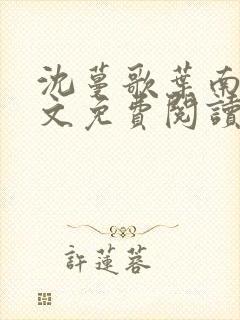 沈蔓歌葉南
文免費閱讀
許蓮蓉